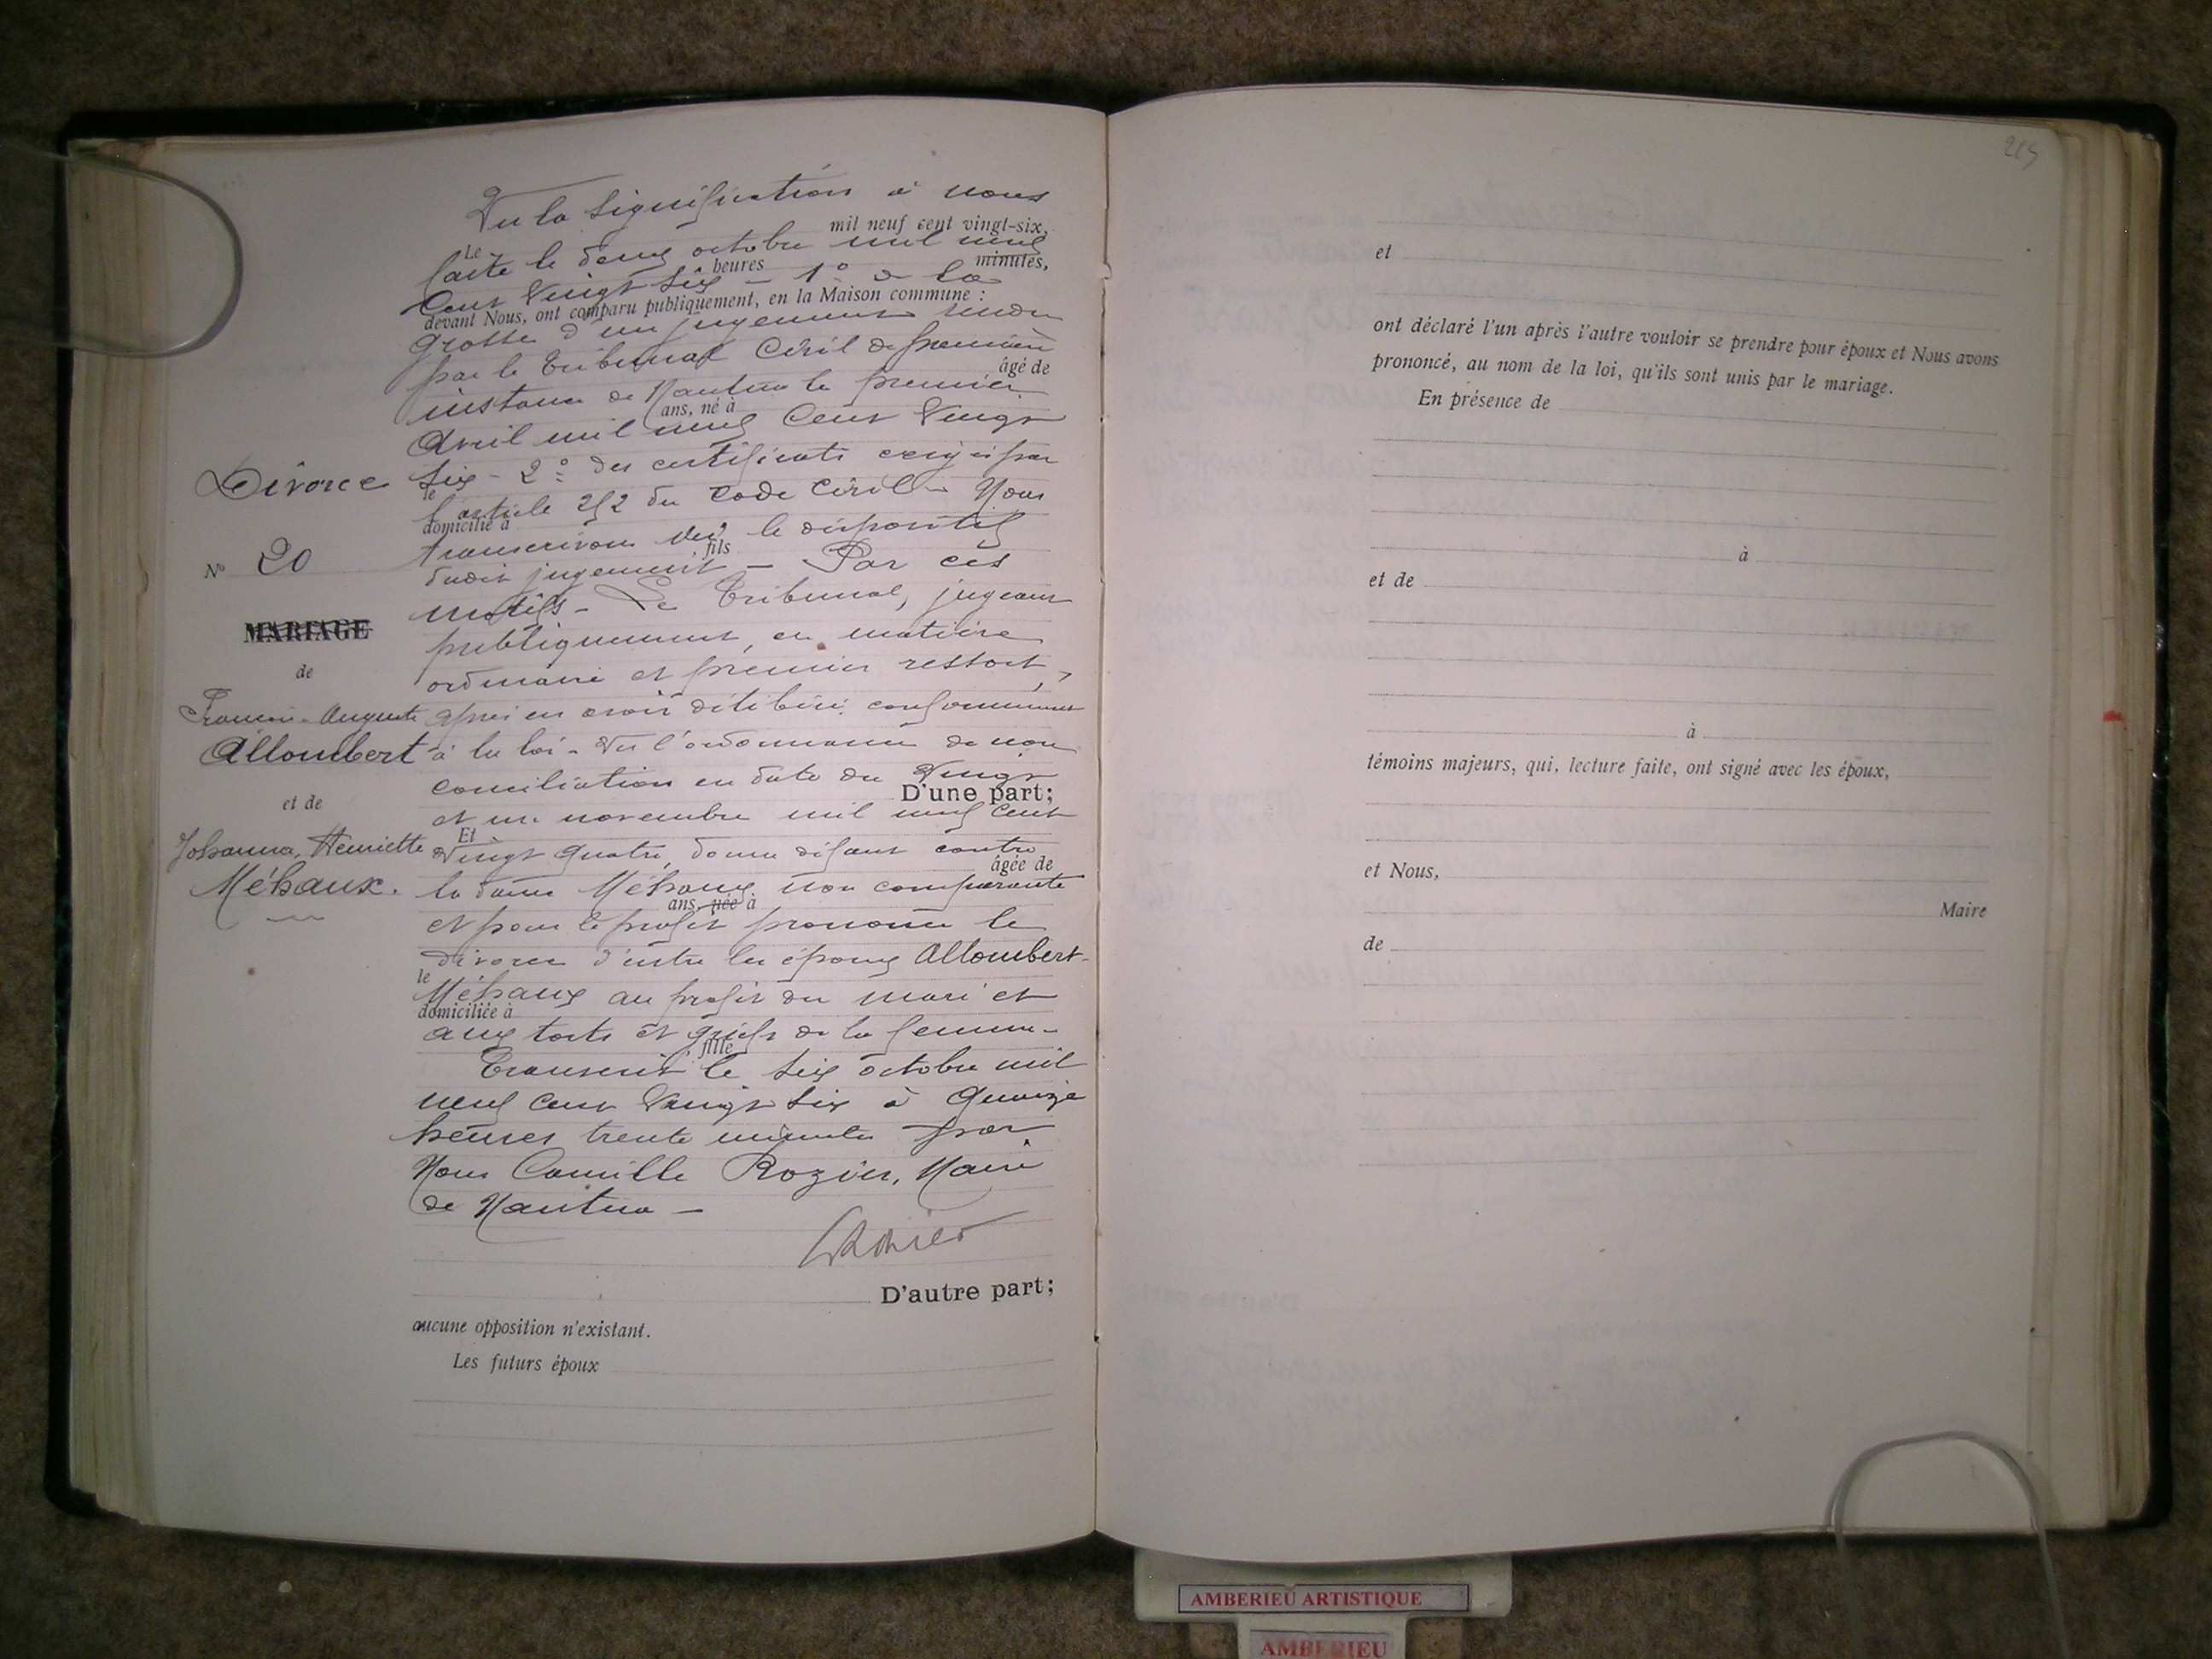 Vu la signification à nous
mil neuf cent vingt-six,
Le
faite le deux octobre mil neuf
heures minutes,
Cent Vingt Six - 1° de la
devant Nous, ont comparu publiquement, en la Maison commune :
grosse d'un jugement rendu
par le Tribunal Civil de première
âgé de
instance de Nantua le premier
ans, né à
Avril mil neuf Cent Vingt
Six - 2° des certificats exigés par
le
l'article 252 du Code Civil - Nous
domicilié à
transcrivons le dispositif
fils
dudit jugement - Par ces
motifs - Le Tribunal, jugeant
publiquement, en matière
ordinaire et premier ressort,
après en avoir délibéré conformément
à la loi - Vu l'ordonnance de non
conciliation en date du Vingt
D'une part;
et un novembre mil neuf Cent
Et
Vingt quatre, donne défaut contre
âgée de
la dame Méhaux non comparante
ans, née à
et pour le profit prononce le
divorce d'entre les époux Allombert-
le
Méhaux au profit du mari et
domiciliée à
aux torts et griefs de la femme -
fille
Transcrit le Six octobre mil
neuf Cent Vingt Six à Quinze
heures trente minutes par
Nous Camille Rozier, Maire
de Nantua -
D'autre part;
aucune opposition n'existant.
Les futurs époux
Divorce
N° 20
MARIAGE
de
Francis-Auguste
Allombert
et de
Johanna, Henriette
Méhaux.
215
et
ont déclaré l'un après l'autre vouloir se prendre pour époux et Nous avons
prononcé, au nom de la loi, qu'ils sont unis par le mariage.
En présence de
à
et de
à
témoins majeurs, qui, lecture faite, ont signé avec les époux,
et Nous,
Maire
de
AMBERIEU ARTISTIQUE
AMBERIEU